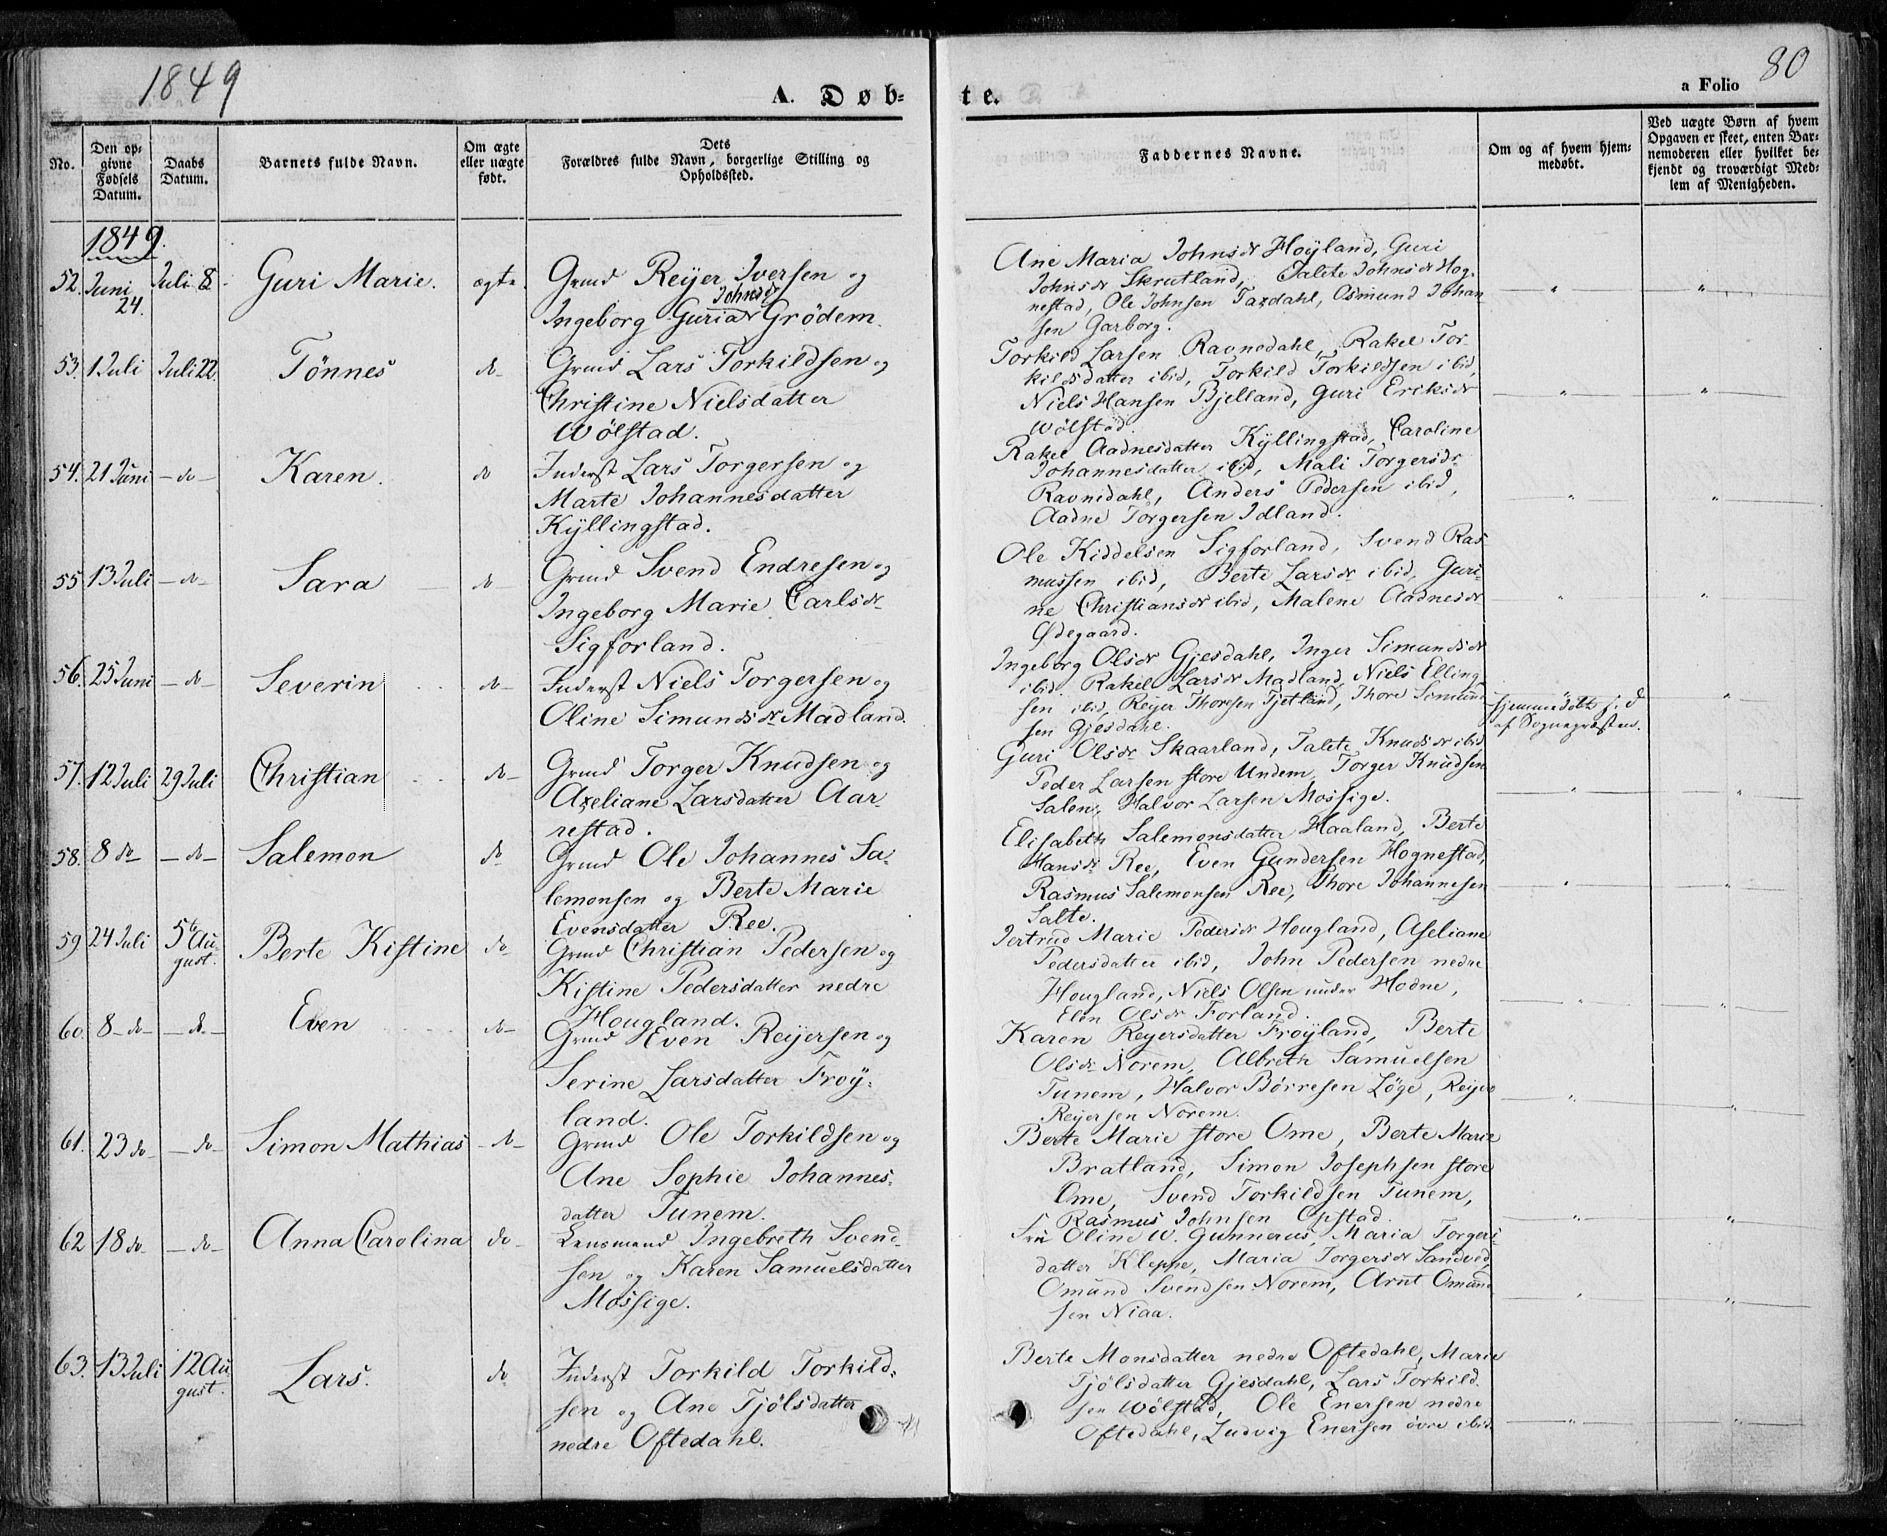 1849
A. Døb-
te.
a Folio
80
No.
Den op-
givne
Fødsels
Datum.
Daabs
Datum.
Barnets fulde Navn.
Om ægte
eller uægte
født.
Dets
Forældres fulde Navn, borgerlige Stilling og
Opholdssted.
Faddernes Navne.
Om og af hvem hjem-
medøbt.
Ved uægte Børn af hvem
Opgaven er skeet, enten Bar-
nemoderen eller hvilket be-
kjendt og troværdigt Med-
lem af Menigheden.
1849.
52. Juni 24. Juli 8. Guri Marie. ægte.
Grmd Reijer Iversen og
Johnsdr
Ingeborg Guria Grødem.
Ane Maria Johnsdr Høÿland, Guri
Johnsdr Skrutland, Talete Johnsdr Hog-
nestad, Ole Johnsen Taxdahl, Osmund Johan-
sen Garborg.
53. 1 Juli Juli 22. Tønnes do
Grmd Lars Torkildsen og
Christine Nielsdatter
Wølstad.
Torkild Larsen Ravnedahl, Rakel Tor-
kildsdatter ibid, Torkild Torkildsen ibid,
Niels Hansen Bjelland, Guri Eriksdr
Wølstad.
54. 21 Juni -do- Karen. do
Inderst Lars Torgersen og
Marte Johannesdatter
Kÿllingstad.
Rakel Aadnesdatter Kÿllingstad, Caroline
Johannesdatter ibid, Mali Torgersdr
Ravnedahl, Anders Pedersen ibid,
Aadne Torgersen Idland.
55. 13 Juli -do- Sara do
Grmd Svend Endresen og
Ingeborg Marie Carlsdr
Sigforland.
Ole Kiddelsen Sigforland, Svend Ras-
mussen ibid, Berte Larsdr ibid, Guri-
ne Christiansdr ibid, Malene Aadnesdr
Ødegaard.
56. 25 Juni -do- Severin do
Inderst Niels Torgersen og
Oline Simundsdr Madland.
Ingeborg Olsdr Gjesdahl, Inger Simundsdr
ibid, Rakel Larsdr Madland, Niels Elling-
sen ibid, Reijer Thoresen Tjetland, Thore Simund-
sen Gjesdahl.
hjemmedøbt s. d.
af Sognepræsten.
57. 12 Juli 29 Juli Christian do
Grmd Torger Knudsen og
Axeliane Larsdatter Aar-
restad.
Guri Olsdr Skaarland, Talete Knudsdr ibid
Peder Larsen store Undem, Torger Knudsen
Salen, Halvor Larsen Mossige.
58. 8 do -do- Salemon do
Grmd Ole Johannes Sa-
lemonsen og Berte Marie
Evensdatter Ree.
Elisabeth Salemonsdatter Haaland, Berte
Hansdr Ree, Even Gundersen Hognestad,
Rasmus Salemonsen Ree, Thore Johannesen
Salte.
59 24 Juli 5te Au-
gust. Berte Kistine do
Grmd Christian Pedersen og
Kistine Pedersdatter nedre
Hougland.
Jertrud Marie Pedersdr Hougland, Aseliane
Pedersdatter ibid, John Pedersen nedre
Hougland, Niels Olsen under Hodne,
Elen Olsdr Forland.
60. 8 -do- -do- Even do
Grmd Even Reijersen og
Serine Larsdatter Froÿ-
land.
Karen Reyersdatter Froÿland, Berte
Olsdr Norem, Albreth Samuelsen
Tunem, Halvor Børresen Løge, Reijer
Reijersen Norem.
61. 23 do -do- Simon Mathias do
Grmd Ole Torkildsen og
Ane Sophie Johannes-
datter Tunem.
Berte Marie store Ome, Berte Marie
Bratland, Simon Josephsen store
Ome, Svend Torkildsen Tunem,
Rasmus Johnsen Opstad.
62 18 do -do- Anna Carolina do
Lensmand Ingebreth Svend-
sen og Karen Samuelsdatter
Mossige.
Fru Oline W. Gunnerus, Maria Torgers-
datter Kleppe, Maria Torgersdr Sandved,
Omund Svendsen Norem, Arnt Omund-
sen Niaa.
63. 13 Juli 12 Au-
gust. Lars. do
Inderst Torkild Torkild-
sen og Ane Tjølsdatter
nedre Oftedahl.
Berte Monsdatter nedre Oftedahl, Marie
Tjølsdatter Gjesdahl, Lars Torkild-
sen Wølstad, Ole Enersen nedre
Oftedahl, Ludvig Enersen øvre ibid.